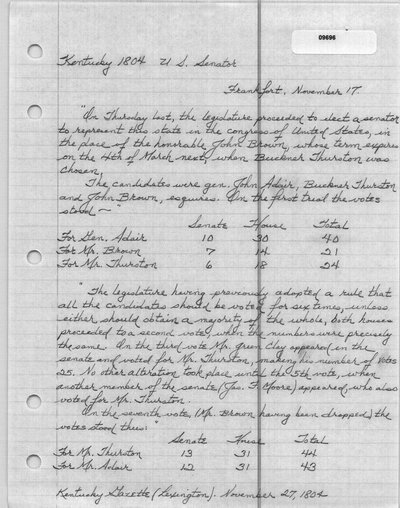 09696
Kentucky 1804 U.S. Senator
Frankfort, November 17.
"On Thursday last, the legislature proceeded to elect a senator
to represent this state in the congress of United States, in
the place of the honorable John Brown, whose term expires
on the 4th of March next, when Buckner Thurston was
chosen,
The candidates were gen. John Adair, Buckner Thurston
and John Brown, esquires. On the first trial the votes
stood ~"
Senate House Total
For Gen. Adair 10 30 40
For Mr. Brown 7 14 21
For Mr. Thurston 6 18 24
"The legislature having previously adopted a rule that
all the candidates should be voted for six times, unless
either should obtain a majority of the whole, both houses
proceeded to a second vote, when the numbers were precisely
the same. On the third vote Mr. Green Clay appeared in the
senate and voted for Mr. Thurston, making his number of votes
25. No other alteration took place until the 5th vote, when
another member of the senate (Jas. F. Moore) appeared, who also
voted for Mr. Thurston.
On the seventh vote, (Mr. Brown having been dropped) the
votes stood thus:"
Senate House Total
For Mr. Thurston 13 31 44
For Mr. Adair 12 31 43
Kentucky Gazette (Lexington). November 27, 1804